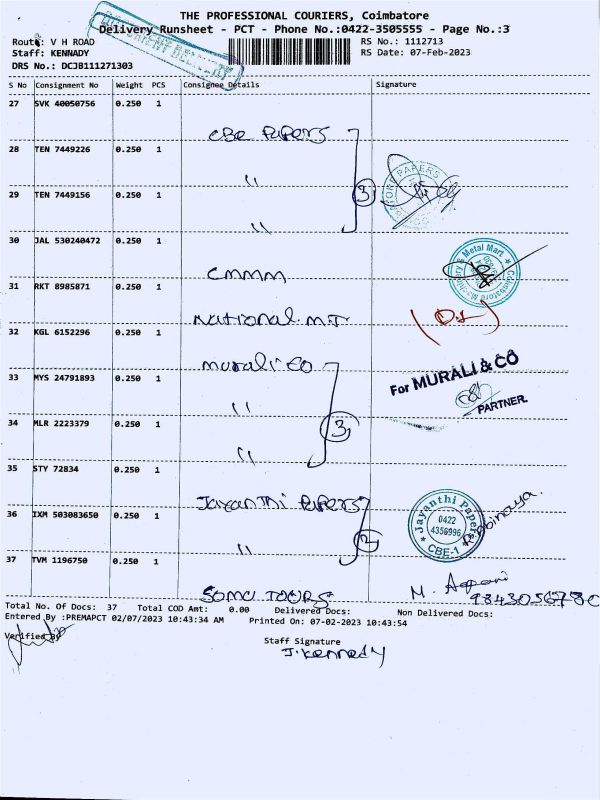 THE PROFESSIONAL COURIERS, Coimbatore
Delivery Runsheet - PCT - Phone No.:0422-3505555 - Page No.:3
Route: V H ROAD
RS No.: 1112713
Staff: KENNADY
RS Date: 07-Feb-2023
DRS No.: DCJB111271303
S No Consignment No Weight PCS Consignee Details Signature
27 SVK 40050756 0.250 1
CBE Papers
28 TEN 7449226 0.250 1
"
29 TEN 7449156 0.250 1
3
"
30 JAL 530240472 0.250 1
CMMM
31 RKT 8985871 0.250 1
National. M.T.
32 KGL 6152296 0.250 1
murali co
33 MYS 24791893 0.250 1
For MURALI & CO
PARTNER.
"
34 MLR 2223379 0.250 1
3
"
35 STY 72834 0.250 1
Jayanthi Papers
36 IXM 503083650 0.250 1
Jayanthi Papers
0422
4356996
CBE-1
2
"
37 TVM 1196750 0.250 1
SOMU TOURS
M.
Total No. Of Docs: 37 Total COD Amt: 0.00 Delivered Docs: Non Delivered Docs:
Entered By :PREMAPCT 02/07/2023 10:43:34 AM Printed On: 07-02-2023 10:43:54
Verified By
Staff Signature
J. Kennedy